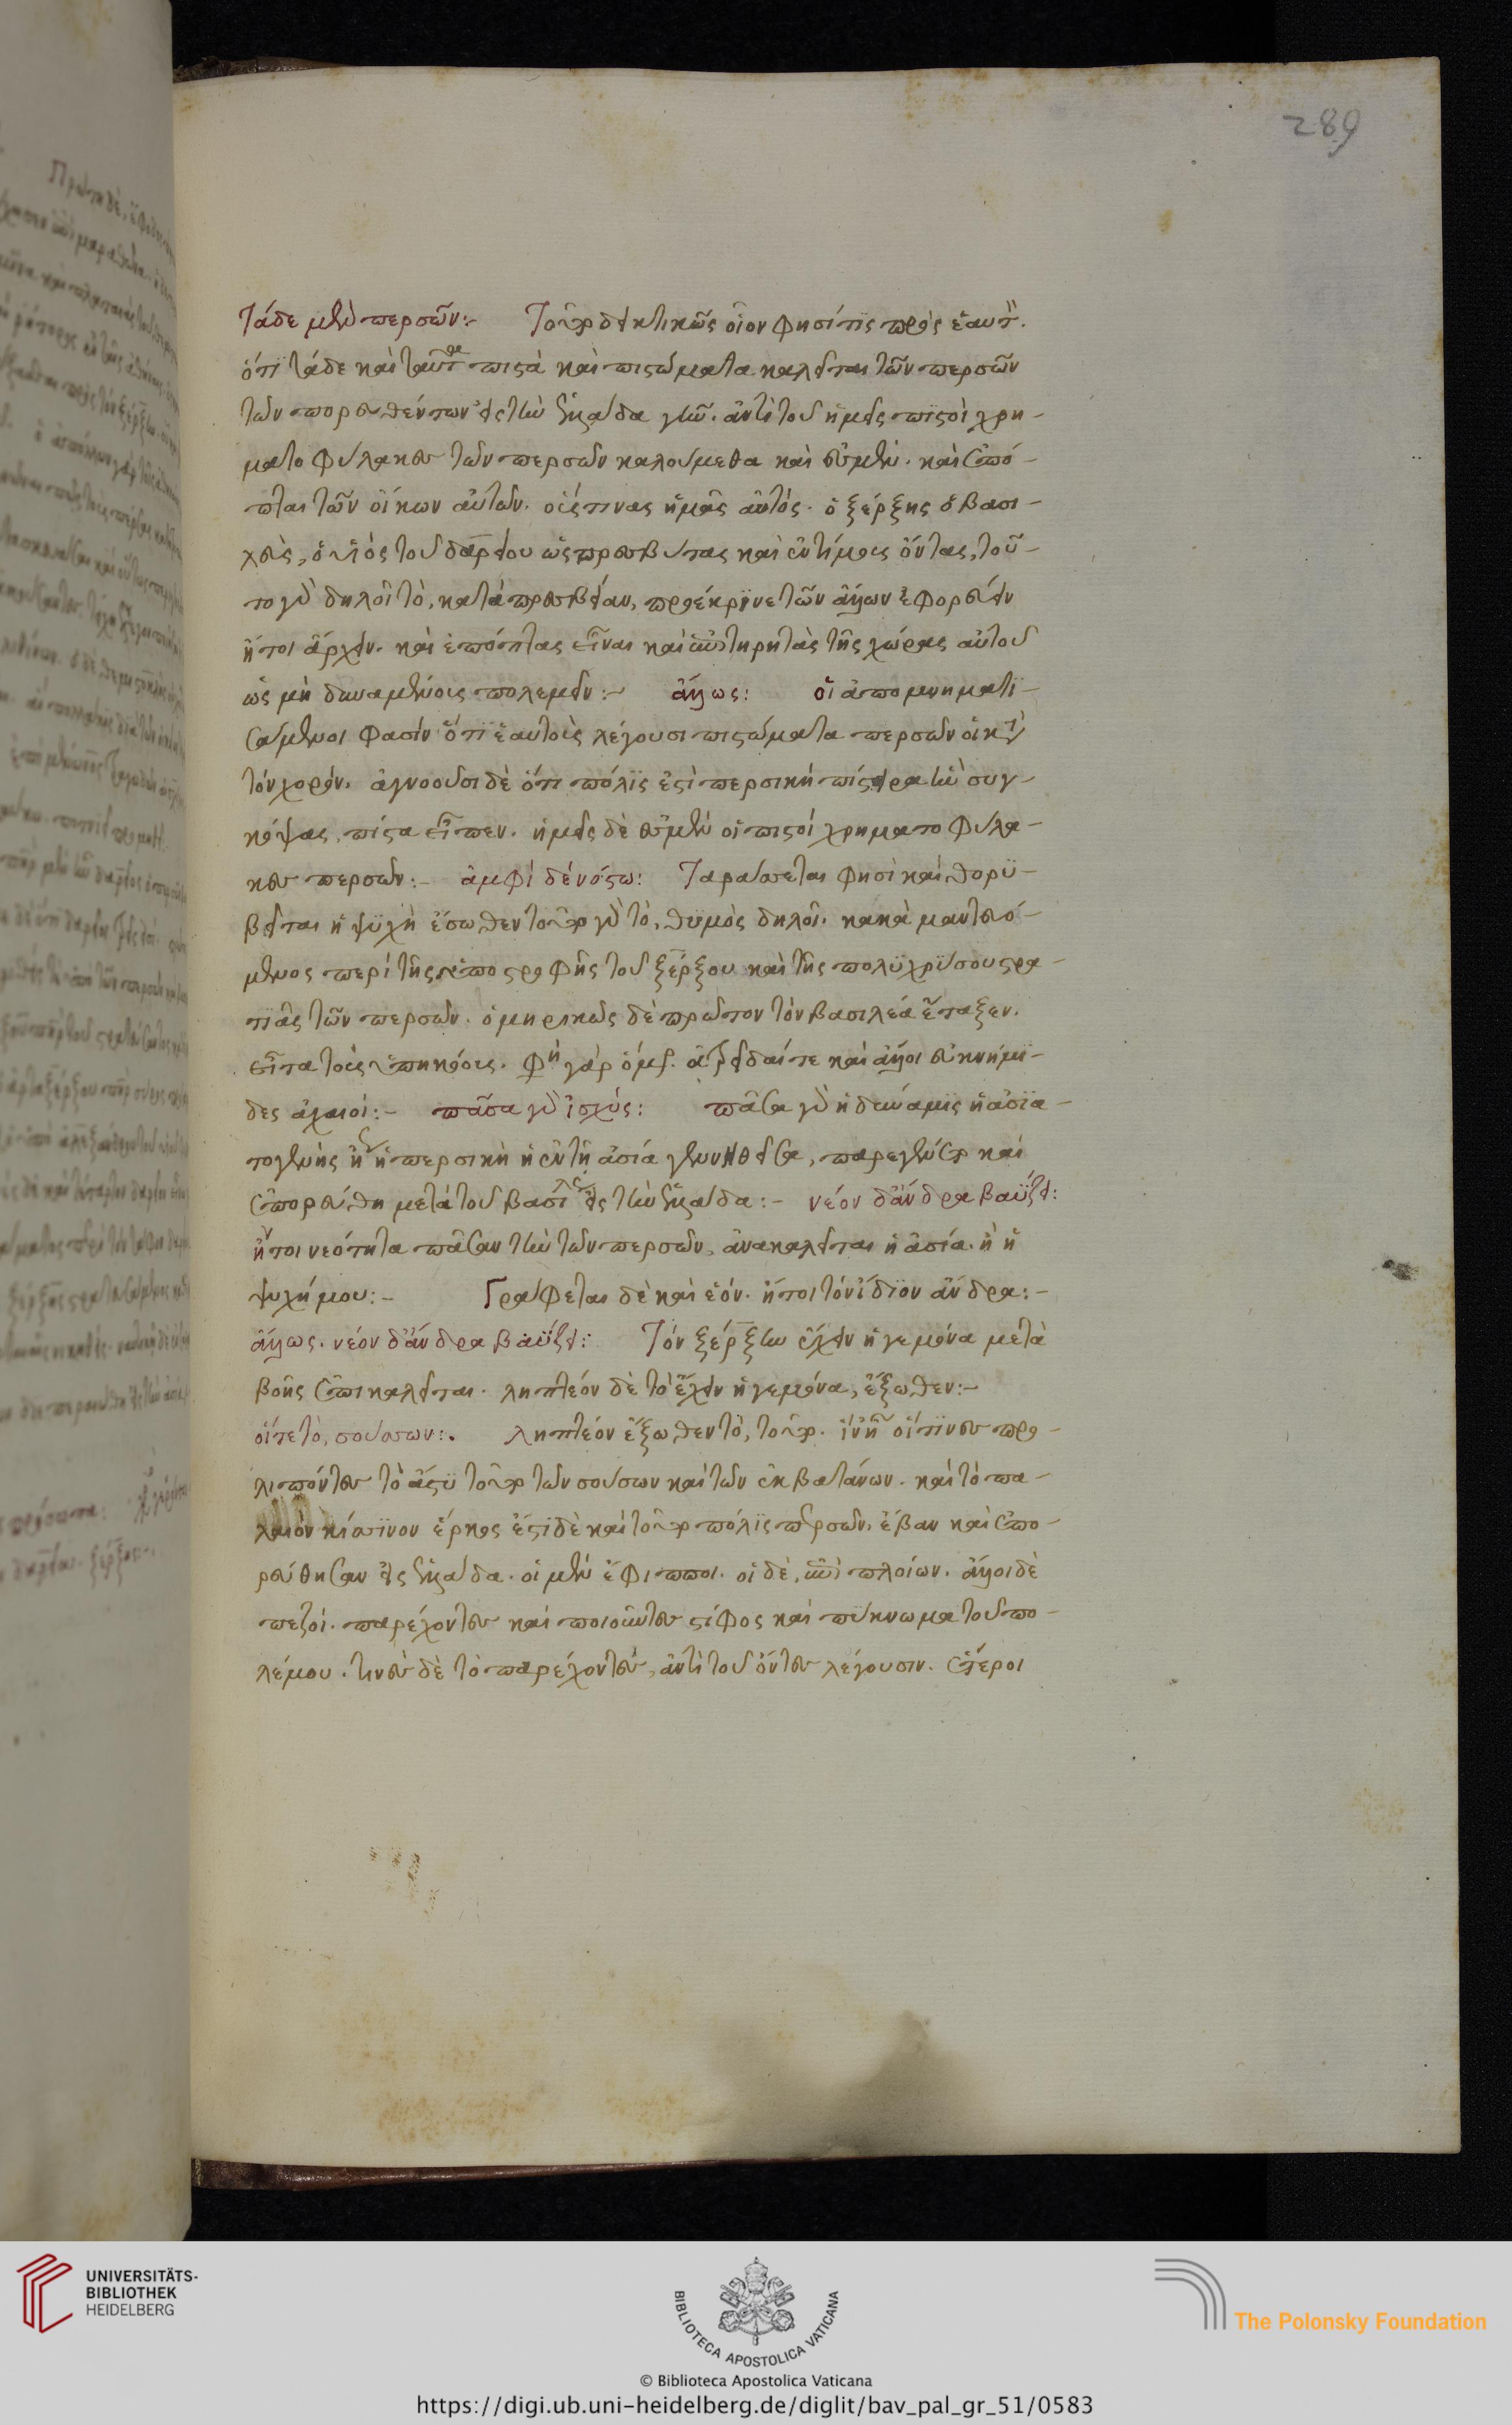 289
Τάδε μὲν περσῶν:- Τουτο δεικτικῶς οἷον φησί τὶς πρὸς ἑαυτὸν.
ὅτι τάδε καὶ ταῦτα πιστὰ καὶ πιστώματα καλεῖται τῶν περσῶν
τῶν πορευθέντων εἰς τὴν ἑλλάδα γῆν. ἀντὶ τοῦ ἡμεῖς πιστοὶ χρη-
ματοφύλακες τῶν περσῶν καλούμεθα καὶ ἐσμὲν. καὶ ἐπό-
πται τῶν οἴκων αὐτῶν. οὕς τινας ἡμᾶς αὐτὸς. ὁ ξέρξης ὁ βασι-
λεὺς, ὁ υἱὸς τοῦ δαρείου ὡς πρεσβύτας καὶ ἐντίμους ὄντας, τοῦ-
το γὰρ δηλοῖ τὸ, κατὰ πρεσβείαν, προέκρινε τῶν ἄλλων ἐφορεύειν
ἤτοι ἄρχειν. καὶ ἐπόπτας εἶναι καὶ ἐπιτηρητὰς τῆς χώρας αὐτοῦ
ὡς μὴ δυναμένους πολεμεῖν:- ἄλλως: οἱ ἀπομνηματι-
σάμενοι φασὶν ὅτι ἑαυτοὺς λέγουσι πιστώματα περσῶν οἱ κατὰ
τὸν χορόν. ἀγνοοῦσι δὲ ὅτι πόλις ἐστὶ περσικὴ πίστειρα ἣν συγ-
κόψας, πίστα εἶπεν. ἡμεῖς δὲ ἐσμὲν οἱ πιστοὶ χρηματοφύλα-
κες περσῶν:- ἀμφὶ δὲ νόστω: Ταράσσεται φησὶ καὶ θορυ-
βεῖται ἡ ψυχὴ ἔσωθεν τοῦτο γὰρ τὸ, θυμὸς δηλοῖ. κακὰ μαντευό-
μενος περὶ τῆς ὑποστροφῆς τοῦ ξέρξου καὶ τῆς πολυχρύσου στρα-
τιᾶς τῶν περσῶν. ὁμηρικῶς δὲ πρῶτον τὸν βασιλέα ἔταξεν.
εἶτα τοὺς ὑπηκόους. φη γάρ ὁμη. ἀτρείδαί τε καὶ ἄλλοι εὐκνήμι-
δες ἀχαιοί:- πᾶσα γὰρ ἰσχὺς: πᾶσα γὰρ ἡ δύναμις ἡ ἀσια-
τογενὴς ἢ ἡ περσικὴ ἡ ἐν τῆ ἀσία γεννηθεῖσα, παρεγένετο καὶ
ἐπορεύθη μετὰ τοῦ βασιλέως εἰς τὴν ἑλλάδα:- νέον δ' ἄνδρα βαΰζει:
ἤτοι νεότητα πᾶσαν τὴν τῶν περσῶν, ἀνακαλεῖται ἡ ἀσία. ἢ ἡ
ψυχή μου:- Γράφεται δὲ καὶ ἑόν. ἤτοι τὸν ἴδιον ἄνδρα:-
ἄλλως. νέον δ' ἄνδρα βαΰζει: Τὸν ξέρξην ἔχειν ἡγεμόνα μετὰ
βοῆς ἐπικαλεῖται. ληπτέον δὲ τὸ ἔχειν ἡγεμόνα, ἔξωθεν:-
οἵ τε τὸ, σούσων:. ληπτέον ἔξωθεν τὸ, τοῦτο. ἵν' ἦ οἵ τινες προ-
λιπόντες τὸ ἄστυ τοῦτο τῶν σούσων καὶ τῶν ἐκβατάνων. καὶ τὸ πα-
λαιὸν κίσσινον ἕρκος ἔστι δὲ καὶ τοῦτο πόλις περσῶν. ἔβαν καὶ ἐπο-
ρεύθησαν εἰς ἑλλάδα. οἱ μὲν ἔφιπποι. οἱ δὲ, ἐπὶ πλοίων. ἄλλοι δὲ
πεζοί. παρέχοντες καὶ ποιοῦντες στίφος καὶ πύκνωμα τοῦ πο-
λέμου. τινὲς δὲ τὸ παρέχοντες, ἀντὶ τοῦ ὄντες λέγουσιν. ἕτεροι
UNIVERSITÄTS-
BIBLIOTHEK
HEIDELBERG
BIBLIOTECA APOSTOLICA VATICANA
The Polonsky Foundation
© Biblioteca Apostolica Vaticana
https://digi.ub.uni-heidelberg.de/diglit/bav_pal_gr_51/0583